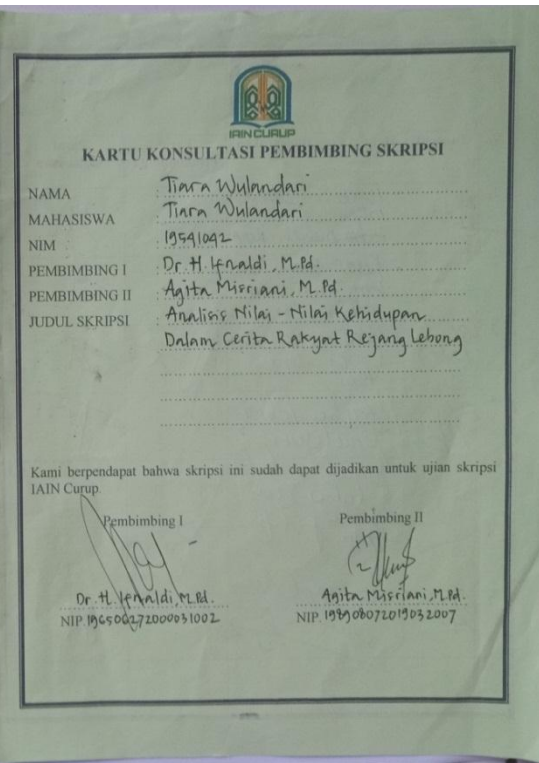 IAIN CURUP
KARTU KONSULTASI PEMBIMBING SKRIPSI
NAMA : Tiara Wulandari
MAHASISWA : Tiara Wulandari
NIM : 19541042
PEMBIMBING I : Dr. H. Ifnaldi, M.Pd.
PEMBIMBING II : Agita Misriani, M.Pd.
JUDUL SKRIPSI : Analisis Nilai - Nilai Kehidupan
Dalam Cerita Rakyat Rejang Lebong
Kami berpendapat bahwa skripsi ini sudah dapat dijadikan untuk ujian skripsi
IAIN Curup.
Pembimbing I Pembimbing II
Dr. H. Ifnaldi, M.Pd. Agita Misriani, M.Pd.
NIP. 196506272000031002 NIP. 198908072019032007